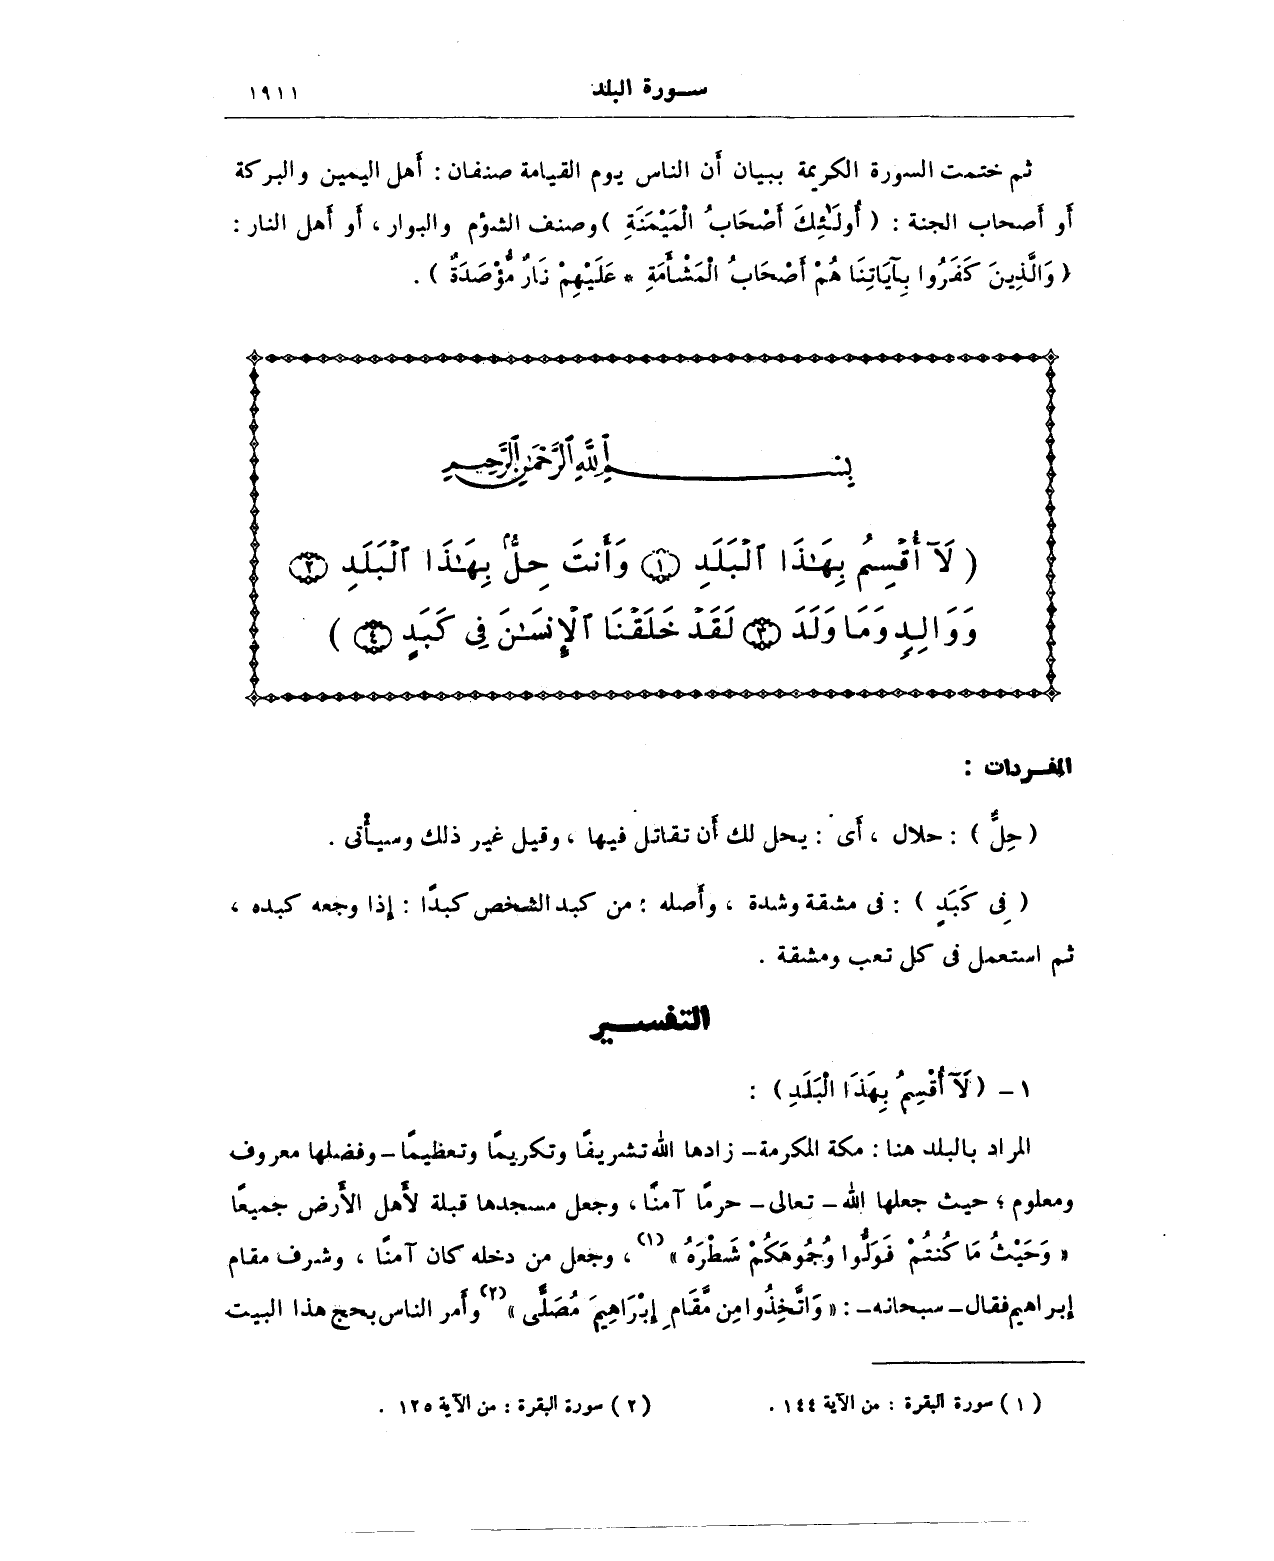 سورة البلد ١٩١١
ثم ختمت السورة الكريمة ببيان أن الناس يوم القيامة صنفان : أهل اليمين والبركة
أو أصحاب الجنة : ( أُولَـٰئِكَ أَصْحَابُ الْمَيْمَنَةِ ) وصنف الشؤم والبوار ، أو أهل النار :
( وَالَّذِينَ كَفَرُوا بِآيَاتِنَا هُمْ أَصْحَابُ الْمَشْأَمَةِ * عَلَيْهِمْ نَارٌ مُّؤْصَدَةٌ ) .
بِسْمِ ٱللَّهِ ٱلرَّحْمَـٰنِ ٱلرَّحِيمِ
( لَآ أُقْسِمُ بِهَـٰذَا ٱلْبَلَدِ ١ وَأَنتَ حِلٌّۢ بِهَـٰذَا ٱلْبَلَدِ ٢
وَوَالِدٍ وَمَا وَلَدَ ٣ لَقَدْ خَلَقْنَا ٱلْإِنسَـٰنَ فِى كَبَدٍ ٤ )
المفردات :
( حِلٌّ ) : حلال ، أى : يحل لك أن تقاتل فيها ، وقيل غير ذلك وسيأتى .
( فِى كَبَدٍ ) : فى مشقة وشدة ، وأصله : من كبد الشخص كبدًا : إذا وجعه كبده ،
ثم استعمل فى كل تعب ومشقة .
التفسير
١ - ( لَآ أُقْسِمُ بِهَذَا الْبَلَدِ ) :
المراد بالبلد هنا : مكة المكرمة - زادها الله تشريفًا وتكريمًا وتعظيمًا - وفضلها معروف
ومعلوم ؛ حيث جعلها الله - تعالى - حرمًا آمنًا ، وجعل مسجدها قبلة لأهل الأرض جميعًا
« وَحَيْثُ مَا كُنتُمْ فَوَلُّوا وُجُوهَكُمْ شَطْرَهُ » (١) ، وجعل من دخله كان آمنًا ، وشرف مقام
إبراهيم فقال - سبحانه - : « وَاتَّخِذُوا مِن مَّقَامِ إِبْرَاهِيمَ مُصَلًّى » (٢) وأمر الناس بحج هذا البيت
( ١ ) سورة البقرة : من الآية ١٤٤ . ( ٢ ) سورة البقرة : من الآية ١٢٥ .